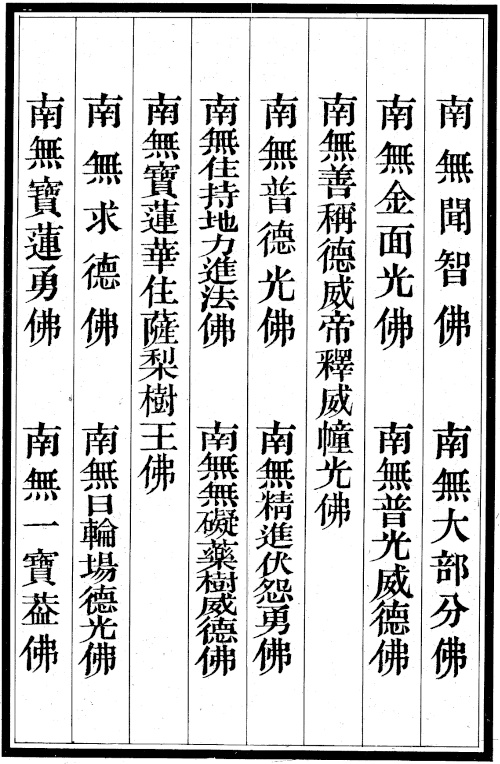 南無聞智佛 南無大部分佛
南無金面光佛 南無普光威德佛
南無善稱德威帝釋威幢光佛
南無普德光佛 南無精進伏怨勇佛
南無住持地力進法佛 南無無礙藥樹威德佛
南無寶蓮華住薩梨樹王佛
南無求德佛 南無日輪場德光佛
南無寶蓮勇佛 南無一寶葢佛